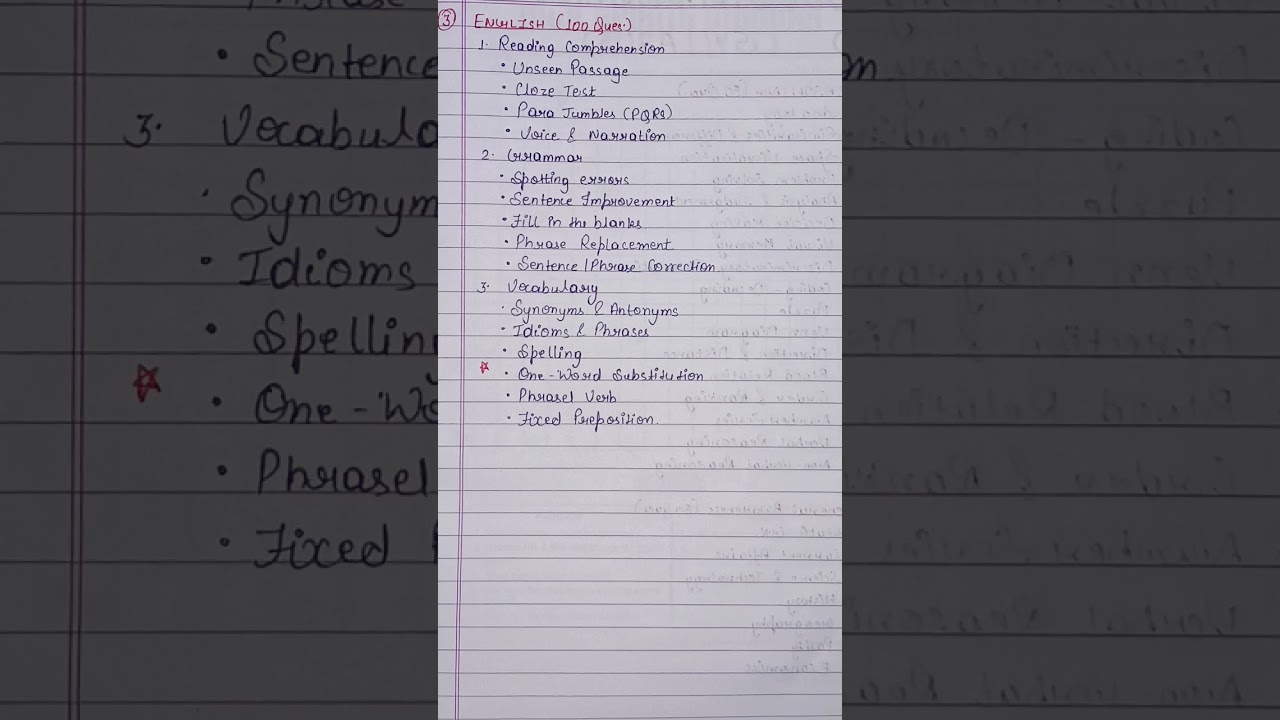 ③ ENGLISH (100 Ques.)
1. Reading Comprehension
• Unseen Passage
• Cloze Test
• Para Jumbles (PQRS)
• Voice & Narration
2. Grammar
• Spotting errors
• Sentence Improvement
• Fill in the blanks
• Phrase Replacement
• Sentence / Phrase Correction
3. Vocabulary
• Synonyms & Antonyms
• Idioms & Phrases
• Spelling
☆ • One-Word Substitution
• Phrasel Verb
• Fixed Preposition.